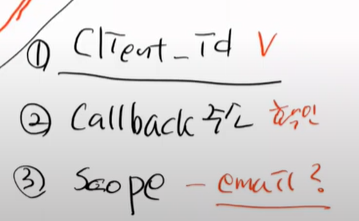 ① Client_Id V
② Callback 주소 확인
③ Scope - email?